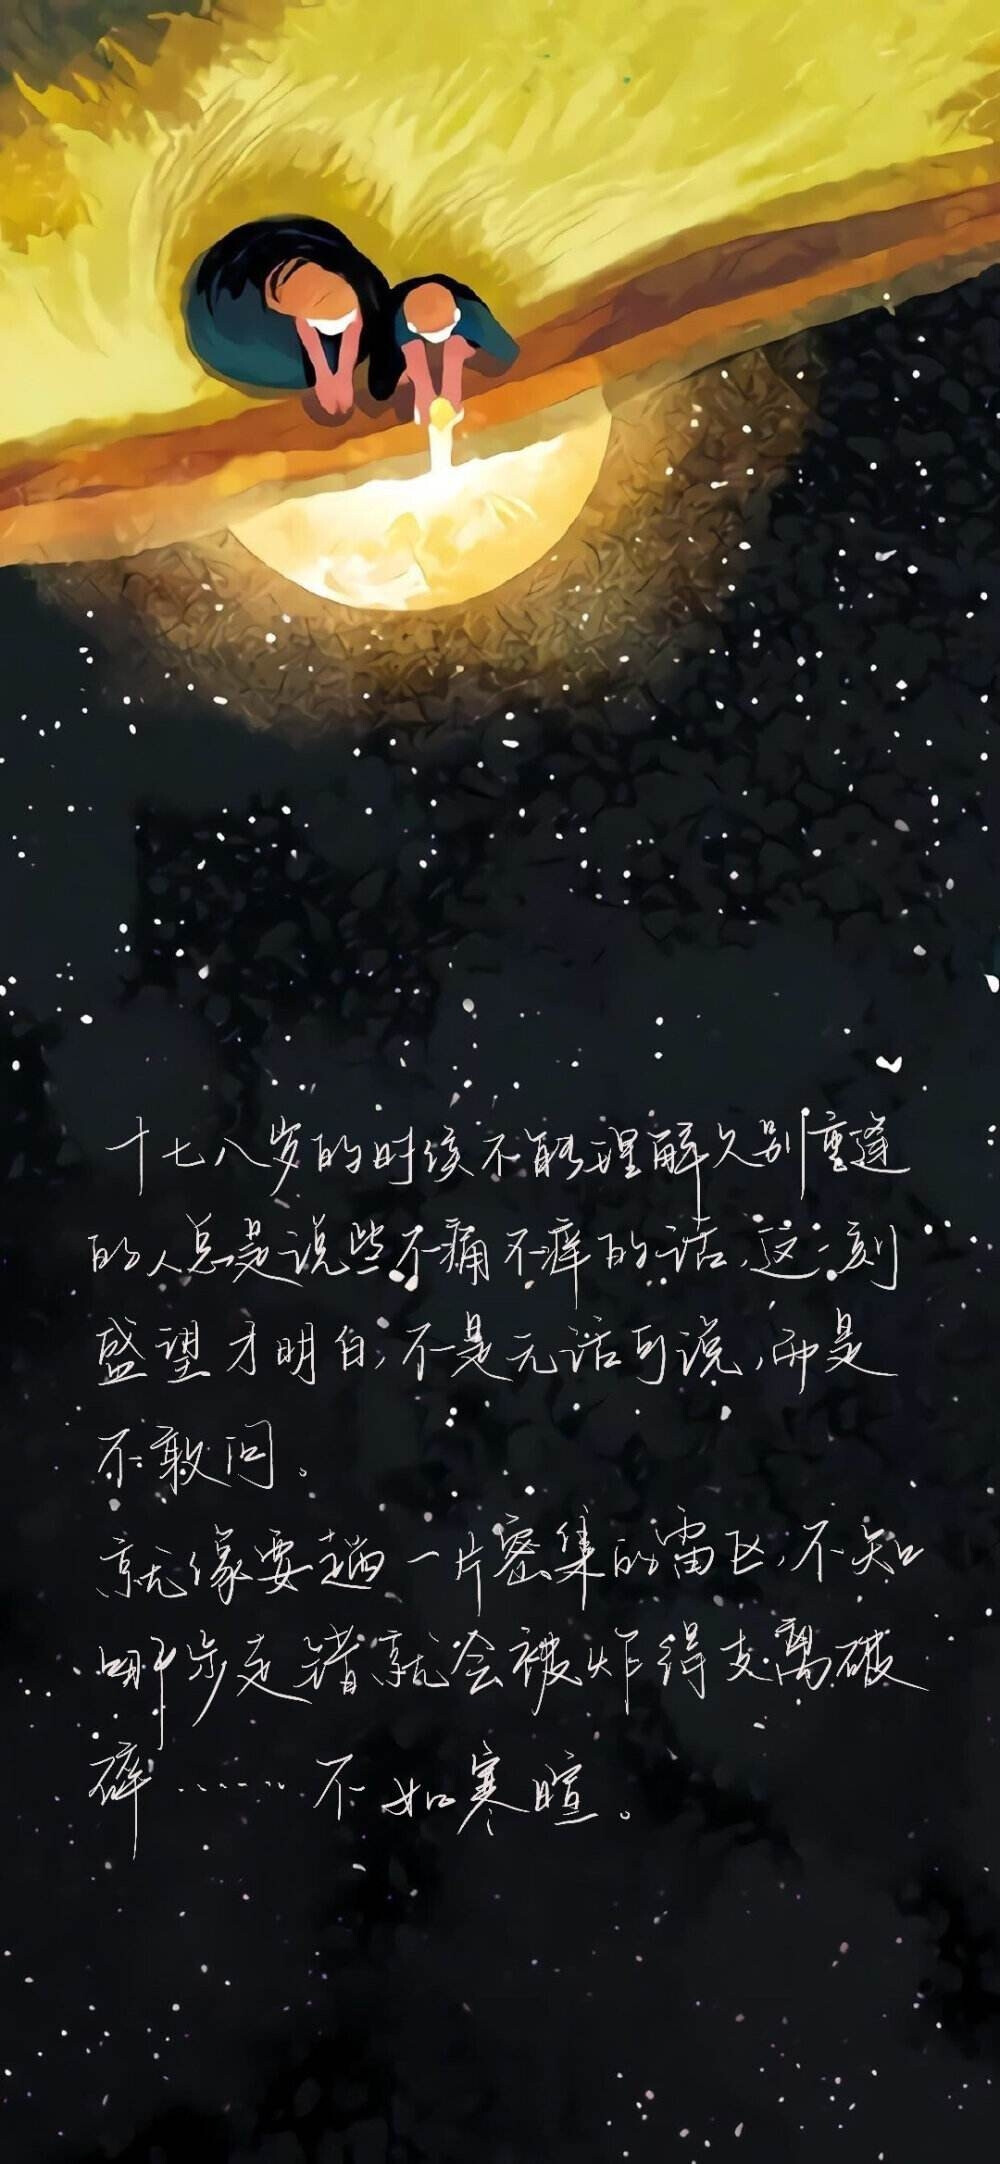 十七八岁的时候不能理解久别重逢
的人总是说些不痛不痒的话，这一刻
盛望才明白，不是无话可说，而是
不敢问。
就像要趟一片密集的雷区，不知
哪步走错就会被炸得支离破
碎……不如寒暄。